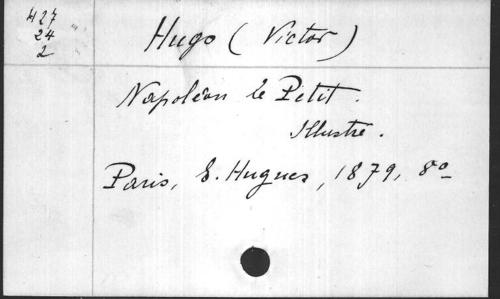 427
24
2
Hugo (Victor)
Napoléon le Petit.
Illustré.
Paris, E. Hugues, 1879, 8º